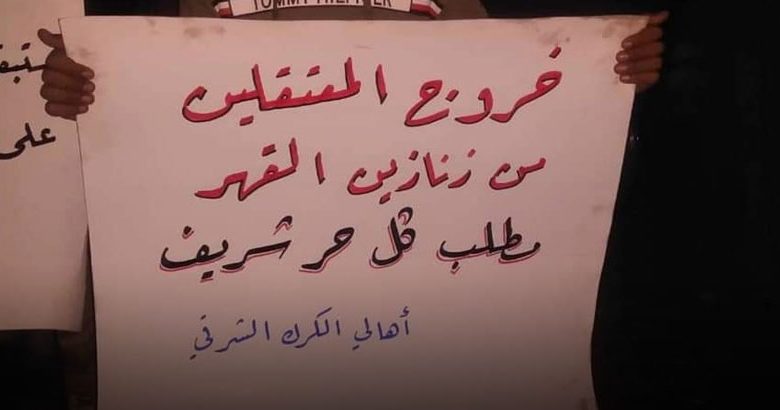 TOMMY HILFIGER
خروج المعتقلين
من زنازين القهر
مطلب كل حر شريف
أهالي الكرك الشرقي
على